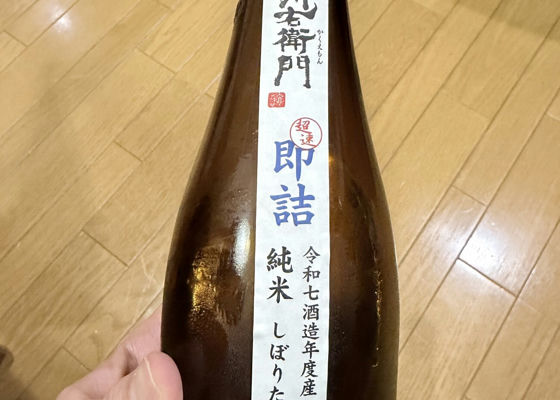 右衛門
かくえもん
超速
即詰
純米 しぼりた
令和七酒造年度産